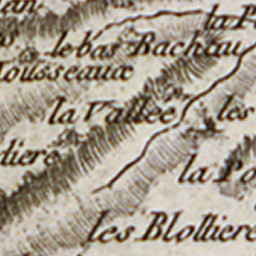 la P
le bas Rachau
Mousseaux
la Vallée
les
diere
la Po
les Blottiere